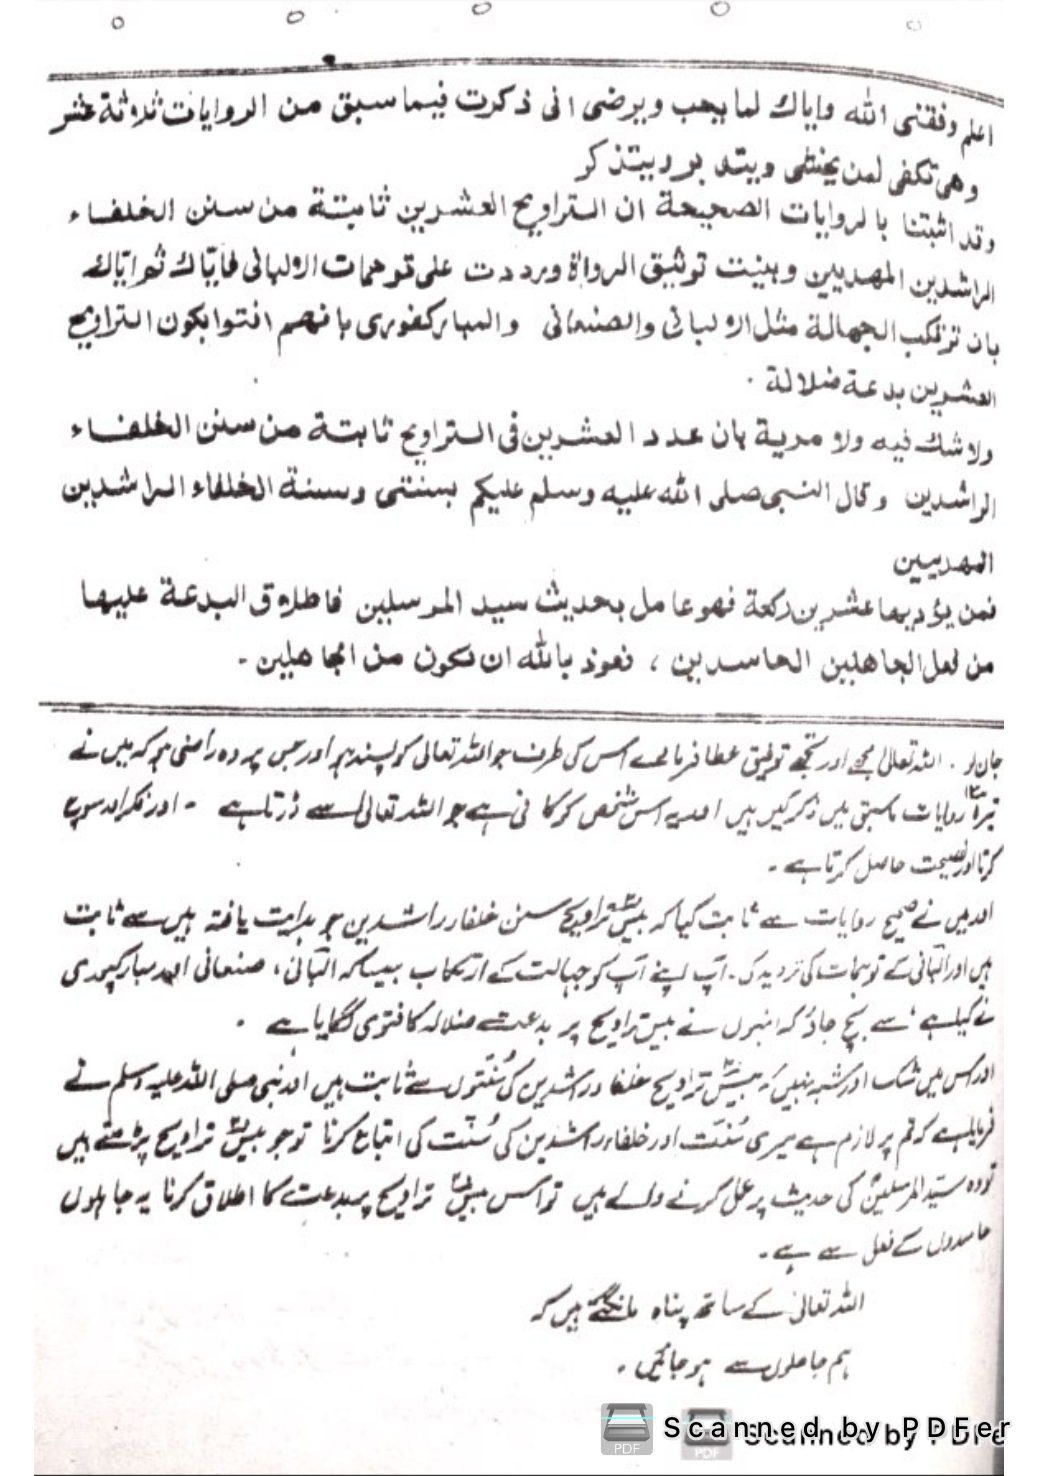 اعلم وفقنی الله وایاك لما یحب ویرضی انی ذکرت فیما سبق من الروایات ثلاثة عشر
وهی تکفی لمن یخشی ویتدبر ویتذکر
وقد اثبتنا بالروایات الصحیحة ان التراویح العشرین ثابتة من سنن الخلفاء
الراشدین المهدیین وبینت توثیق الرواة ورددت علی توهمات الالبانی فایاك ثم ایاك
بان ترتکب الجهالة مثل الالبانی والصنعانی والمبارکفوری بانهم افتوا بکون التراویح
العشرین بدعة ضلالة ۔
ولا شك فیه ولا مریة بان عدد العشرین فی التراویح ثابتة من سنن الخلفاء
الراشدین وقال النبی صلی الله علیه وسلم علیکم بسنتی وسنة الخلفاء الراشدین
المهدیین
فمن یؤدیها عشرین رکعة فهو عامل بحدیث سید المرسلین فاطلاق البدعة علیها
من فعل الجاهلین الحاسدین ، نعوذ بالله ان نکون من الجاهلین ۔
جان لو ۔ اللہ تعالیٰ مجھے اور تجھے توفیق عطا فرمائے اس کی طرف جو اللہ تعالی کو پسند ہو اور جس پر وہ راضی ہو کہ میں نے
تیرہ روایات ماسبق میں ذکر کیں ہیں اور یہ اس شخص کو کافی ہے جو اللہ تعالیٰ سے ڈرتا ہے ۔ اور فکر اور سوچ
کرتا اور نصیحت حاصل کرتا ہے ۔
اور میں نے صحیح روایات سے ثابت کیا کہ بیس تراویح سنن خلفاء راشدین جو ہدایت یافتہ ہیں سے ثابت
ہیں اور البانی کے توہمات کی تردید کی ۔ آپ اپنے آپ کو جہالت کے ارتکاب جیسا کہ البانی، صنعانی اور مبارکپوری
نے کیا ہے سے بچ جاؤ کہ انہوں نے بیس تراویح پر بدعت ضلالہ کا فتویٰ لگایا ہے ۔
اور اس میں شک اور شبہ نہیں کہ بیس تراویح خلفاء راشدین کی سُنتوں سے ثابت ہیں اور نبی صلی اللہ علیہ وسلم نے
فرمایا ہے کہ تم پر لازم ہے میری سُنت اور خلفاء راشدین کی سُنت کی اتباع کرنا تو جو بیس تراویح پڑھتے ہیں
تو وہ سید المرسلین کی حدیث پر عمل کرنے والے ہیں تو اس بیس تراویح پر بدعت کا اطلاق کرنا یہ جاہلوں
حاسدوں کے فعل سے ہے ۔
اللہ تعالیٰ کے ساتھ پناہ مانگتے ہیں کہ
ہم جاہلوں سے ہو جائیں ۔
PDF Scanned by PDFer
PDF Scanned by PDFe